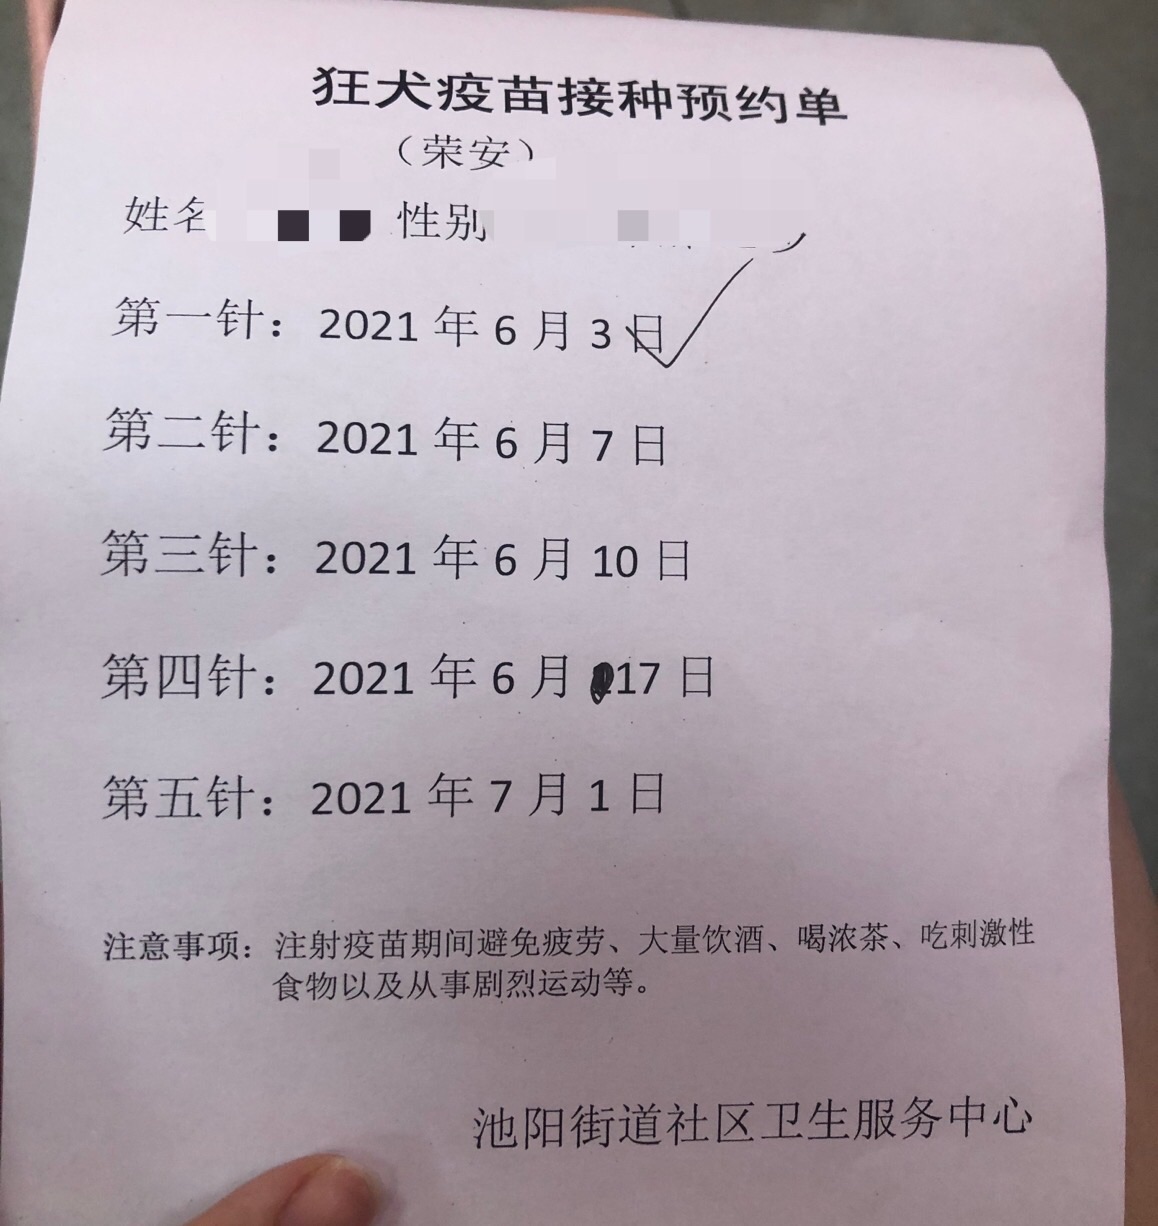 狂犬疫苗接种预约单
（荣安）
姓名 性别
第一针：2021 年 6 月 3 日
第二针：2021 年 6 月 7 日
第三针：2021 年 6 月 10 日
第四针：2021 年 6 月 17 日
第五针：2021 年 7 月 1 日
注意事项：注射疫苗期间避免疲劳、大量饮酒、喝浓茶、吃刺激性
食物以及从事剧烈运动等。
池阳街道社区卫生服务中心